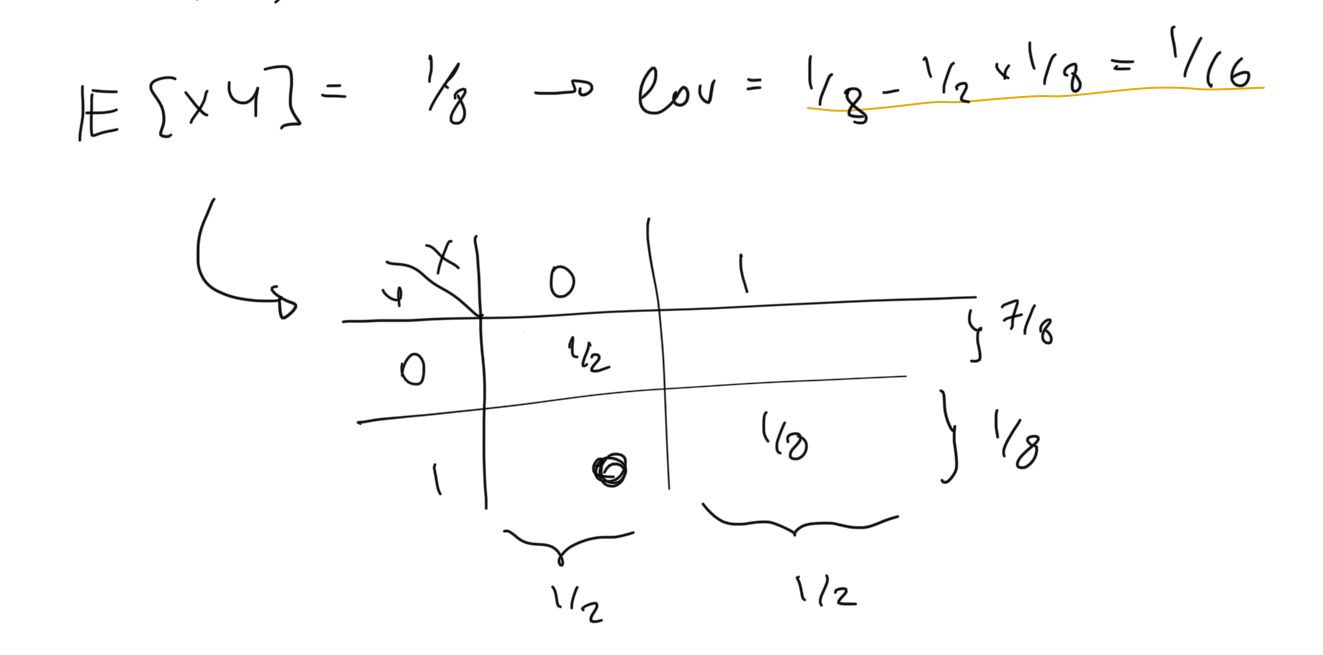 𝔼[XY] = 1/8 → Cov = 1/8 - 1/2 × 1/8 = 1/16
X 0 1
Y
0 1/2 } 7/8
1 0 1/8 } 1/8
1/2 1/2